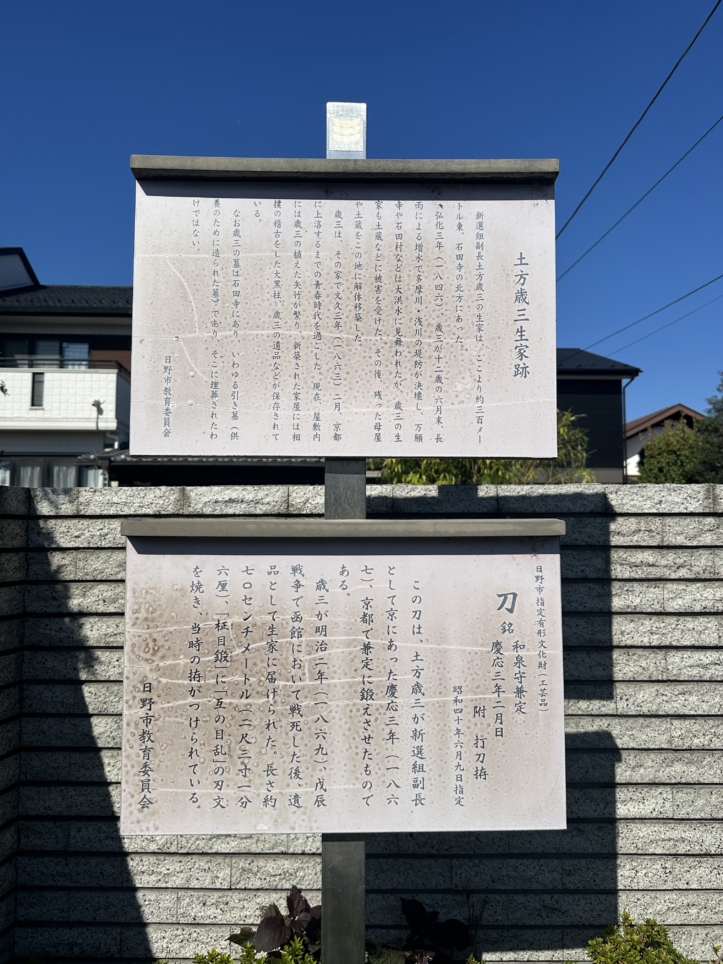 土方歳三生家跡
新選組副長土方歳三の生家は、ここより約三百メー
トル東、石田寺の北方にあった。
弘化三年(一八四六) 歳三が十二歳の六月末、長
雨による増水で多摩川・浅川の堤防が決壊し、万願
寺や石田村などは大洪水に見舞われたが、歳三の生
家も土蔵などに被害を受けた。その後、残った母屋
や土蔵をこの地に解体移築した。
歳三は、その家で文久三年(一八六三)二月、京都
に上洛するまでの青春時代を過ごした。現在、屋敷内
には歳三の植えた矢竹が繁り、新築された家屋には相
撲の稽古をした大黒柱、歳三の遺品などが保存されて
いる。
なお歳三の墓は石田寺にあり、いわゆる引き墓(供
養のために造られた墓)であり、そこに埋葬されたわ
けではない。
日野市教育委員会
日野市指定有形文化財(工芸品)
刀 銘 和泉守兼定
慶応三年二月日
附 打刀拵
昭和四十年六月九日指定
この刀は、土方歳三が新選組副長
として京にあった慶応三年(一八六
七)、京都で兼定に鍛えさせたもので
ある。
歳三が明治二年(一八六九)、戊辰
戦争で函館において戦死した後、遺
品として生家に届けられた。長さ約
七〇センチメートル(二尺三寸一分
六厘)、「柾目鍛」に「互の目乱」の刃文
を焼き、当時の拵がつけられている。
日野市教育委員会